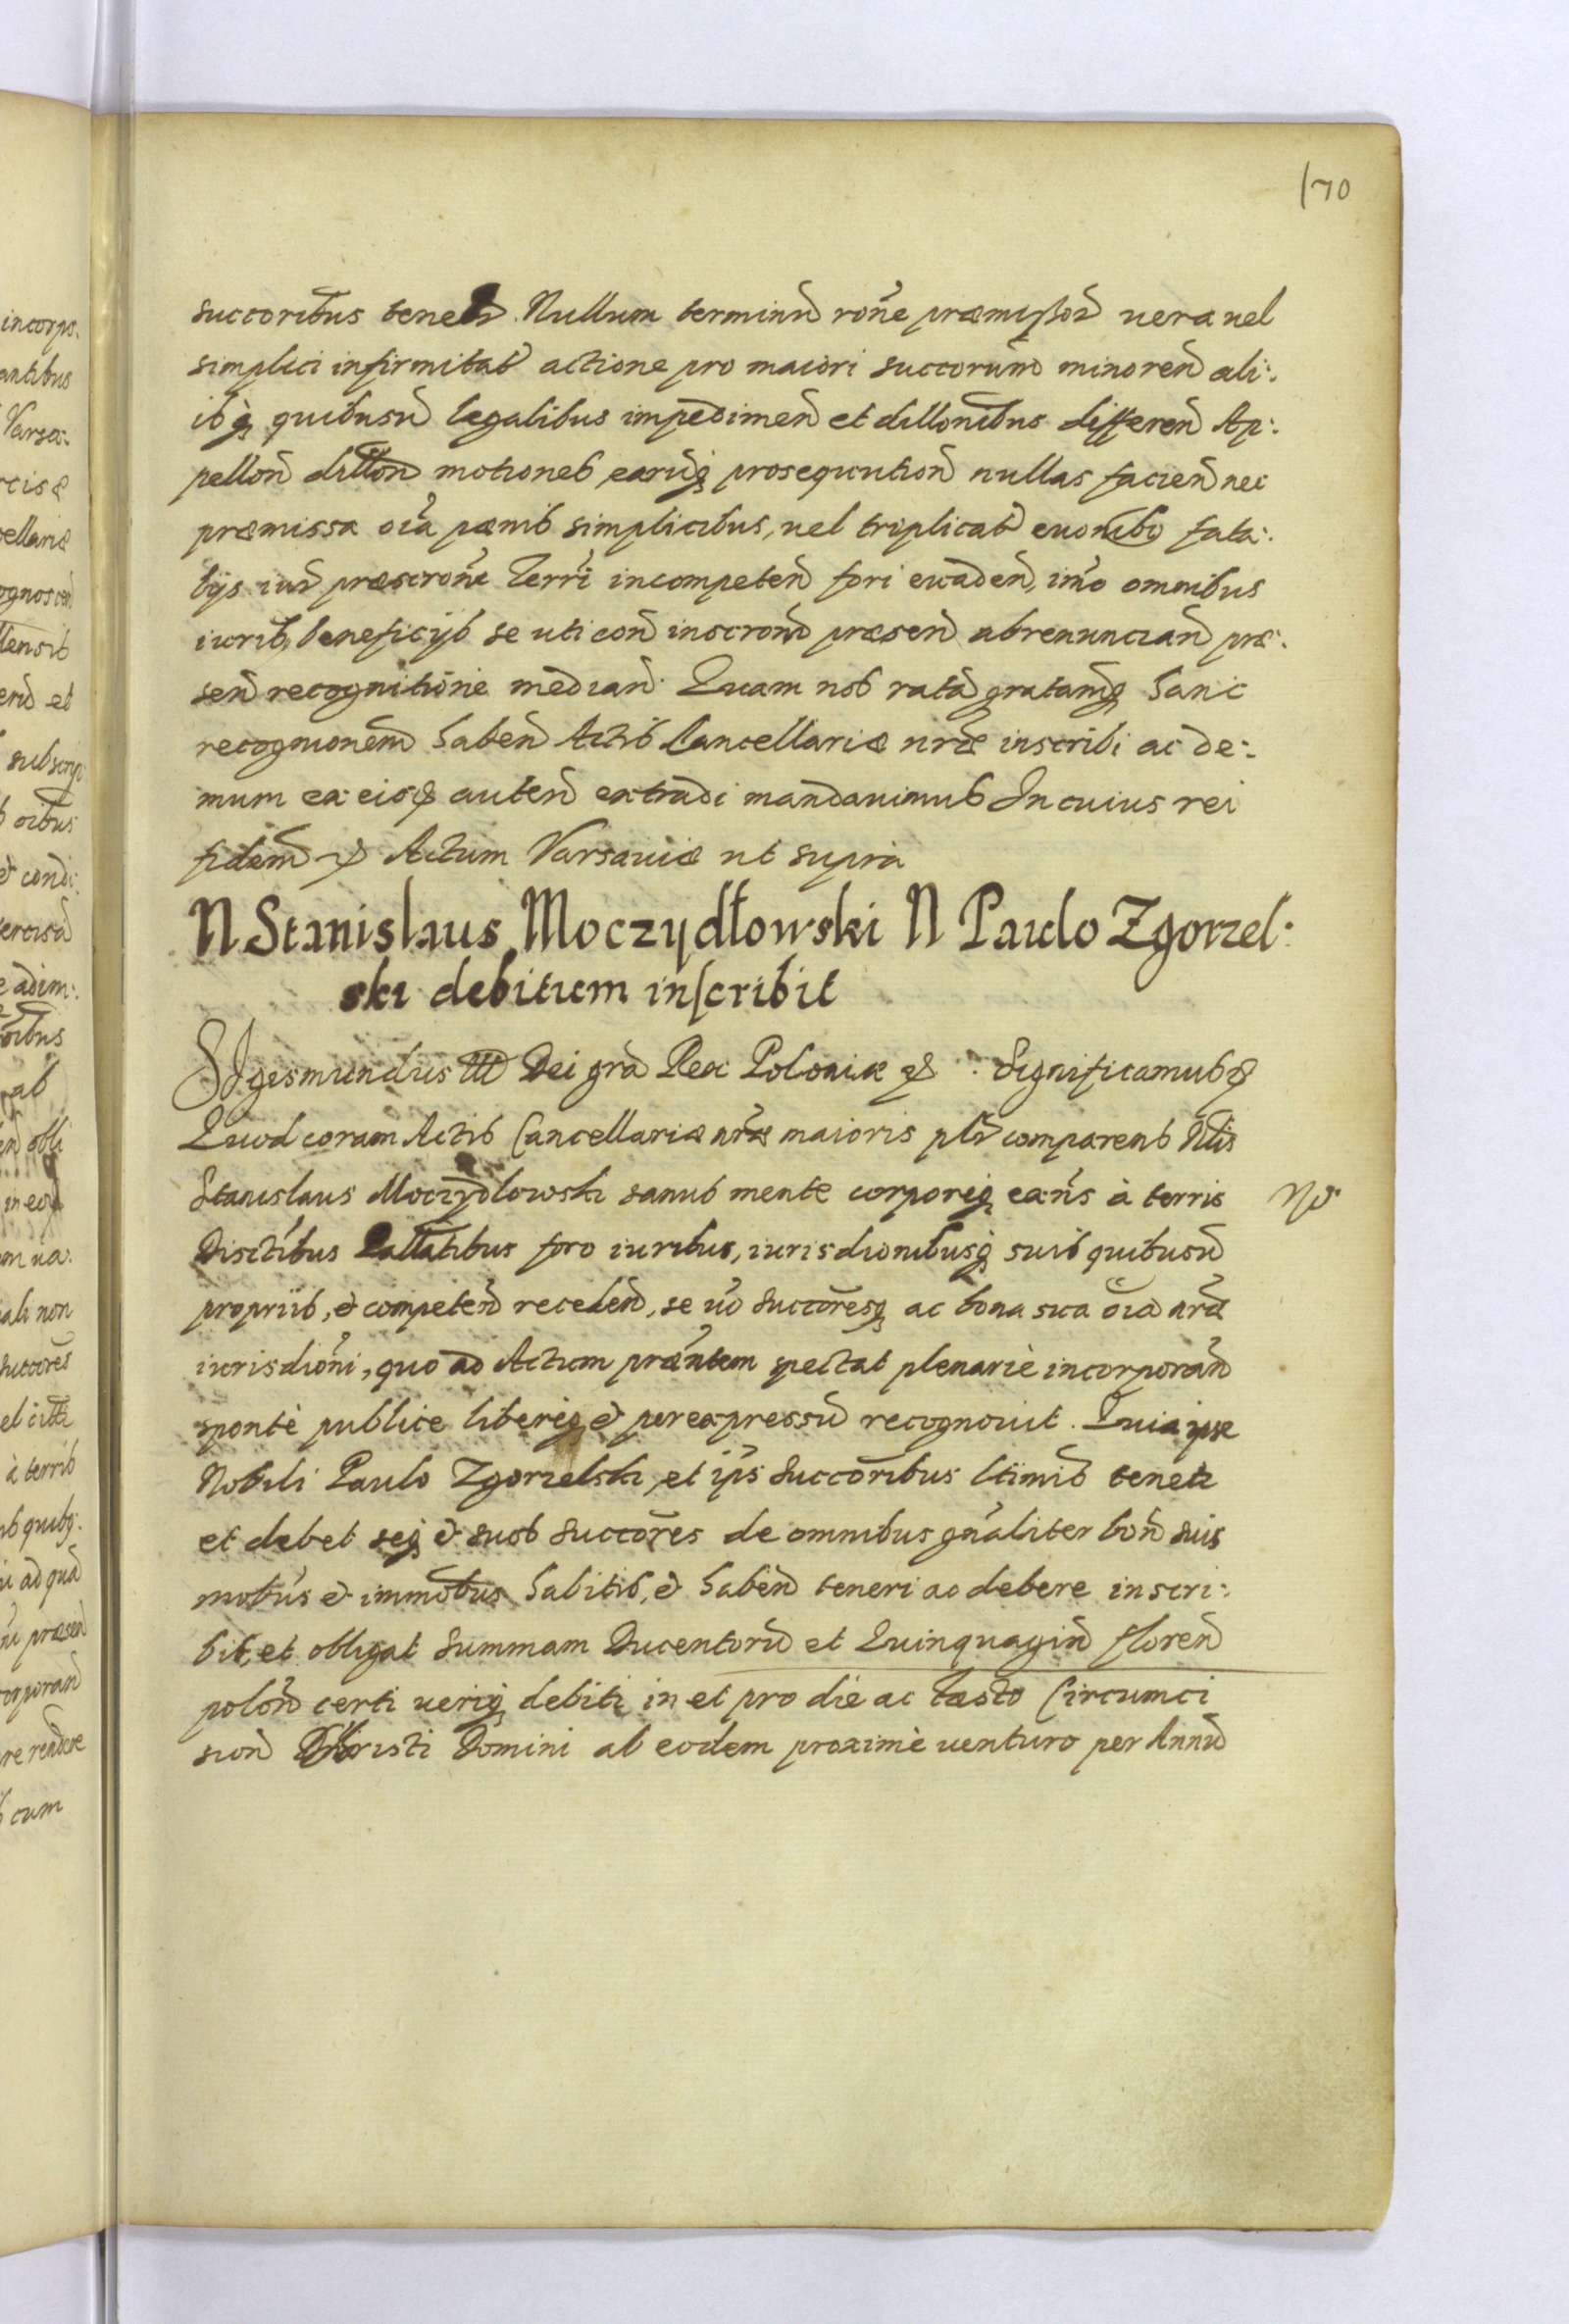 170
succoribus tenebr Nullum terminũ rõne præmissorũ vera vel
simplici infirmitat actione pro maiori succorum minoren ali:
ibq quibusũ legalibus impedimen et dillonibus differen Ap:
pellon dillon motiones earũq prosequution nullas facien nec
præmissa oĩa pænis simplicibus, vel triplicat evonibq fata:
lijs iur præscrõne Terri incompeten fori evaden, imo omnibus
iurib, beneficijs se uti con inscronũ præsen abrenuncian præ:
sen recognitione median. Quam nos ratã gratamq hanc
recognonem haben Actis Cancellariæ nræ inscribi ac de:
mum ex eis & auten extradi mandavimus In cuius rei
fidem & Actum Varsaviæ ut supra
N Stanislaus Moczydłowski N Paulo Zgorzel:
ski debitum inscribit
Sigesmundus III Dei grã Rex Poloniæ & Significamus &
Quod coram Actis Cancellariæ nræ maioris plr comparens Nlis
Stanislaus Moczydlowski sanus mente corporeq exñs à terris
Districtibus Pallatibus foro iuribus, iurisdionibusq suis quibusũ
propriis, et competen receden, se uo succoresq ac bona sua oia nræ
iurisdioni, quo ad Actum præntem spectat plenariè incorporan
spontè publice liberèq et per expressũ recognovit. Quia ipse
Nobili Paulo Zgorzelski, et ips succoribus ltimis tenetr
et debet seq et suos succores de omnibus gnaliter bon suis
mobus et immobus habitis, et haben teneri ac debere inscri:
bit, et obligat summam Ducentorũ et Quinquagin floren
polon certi veriq debiti in et pro die ac festo Circumci
sion Christi Domini ab eodem proximè venturo per Annũ